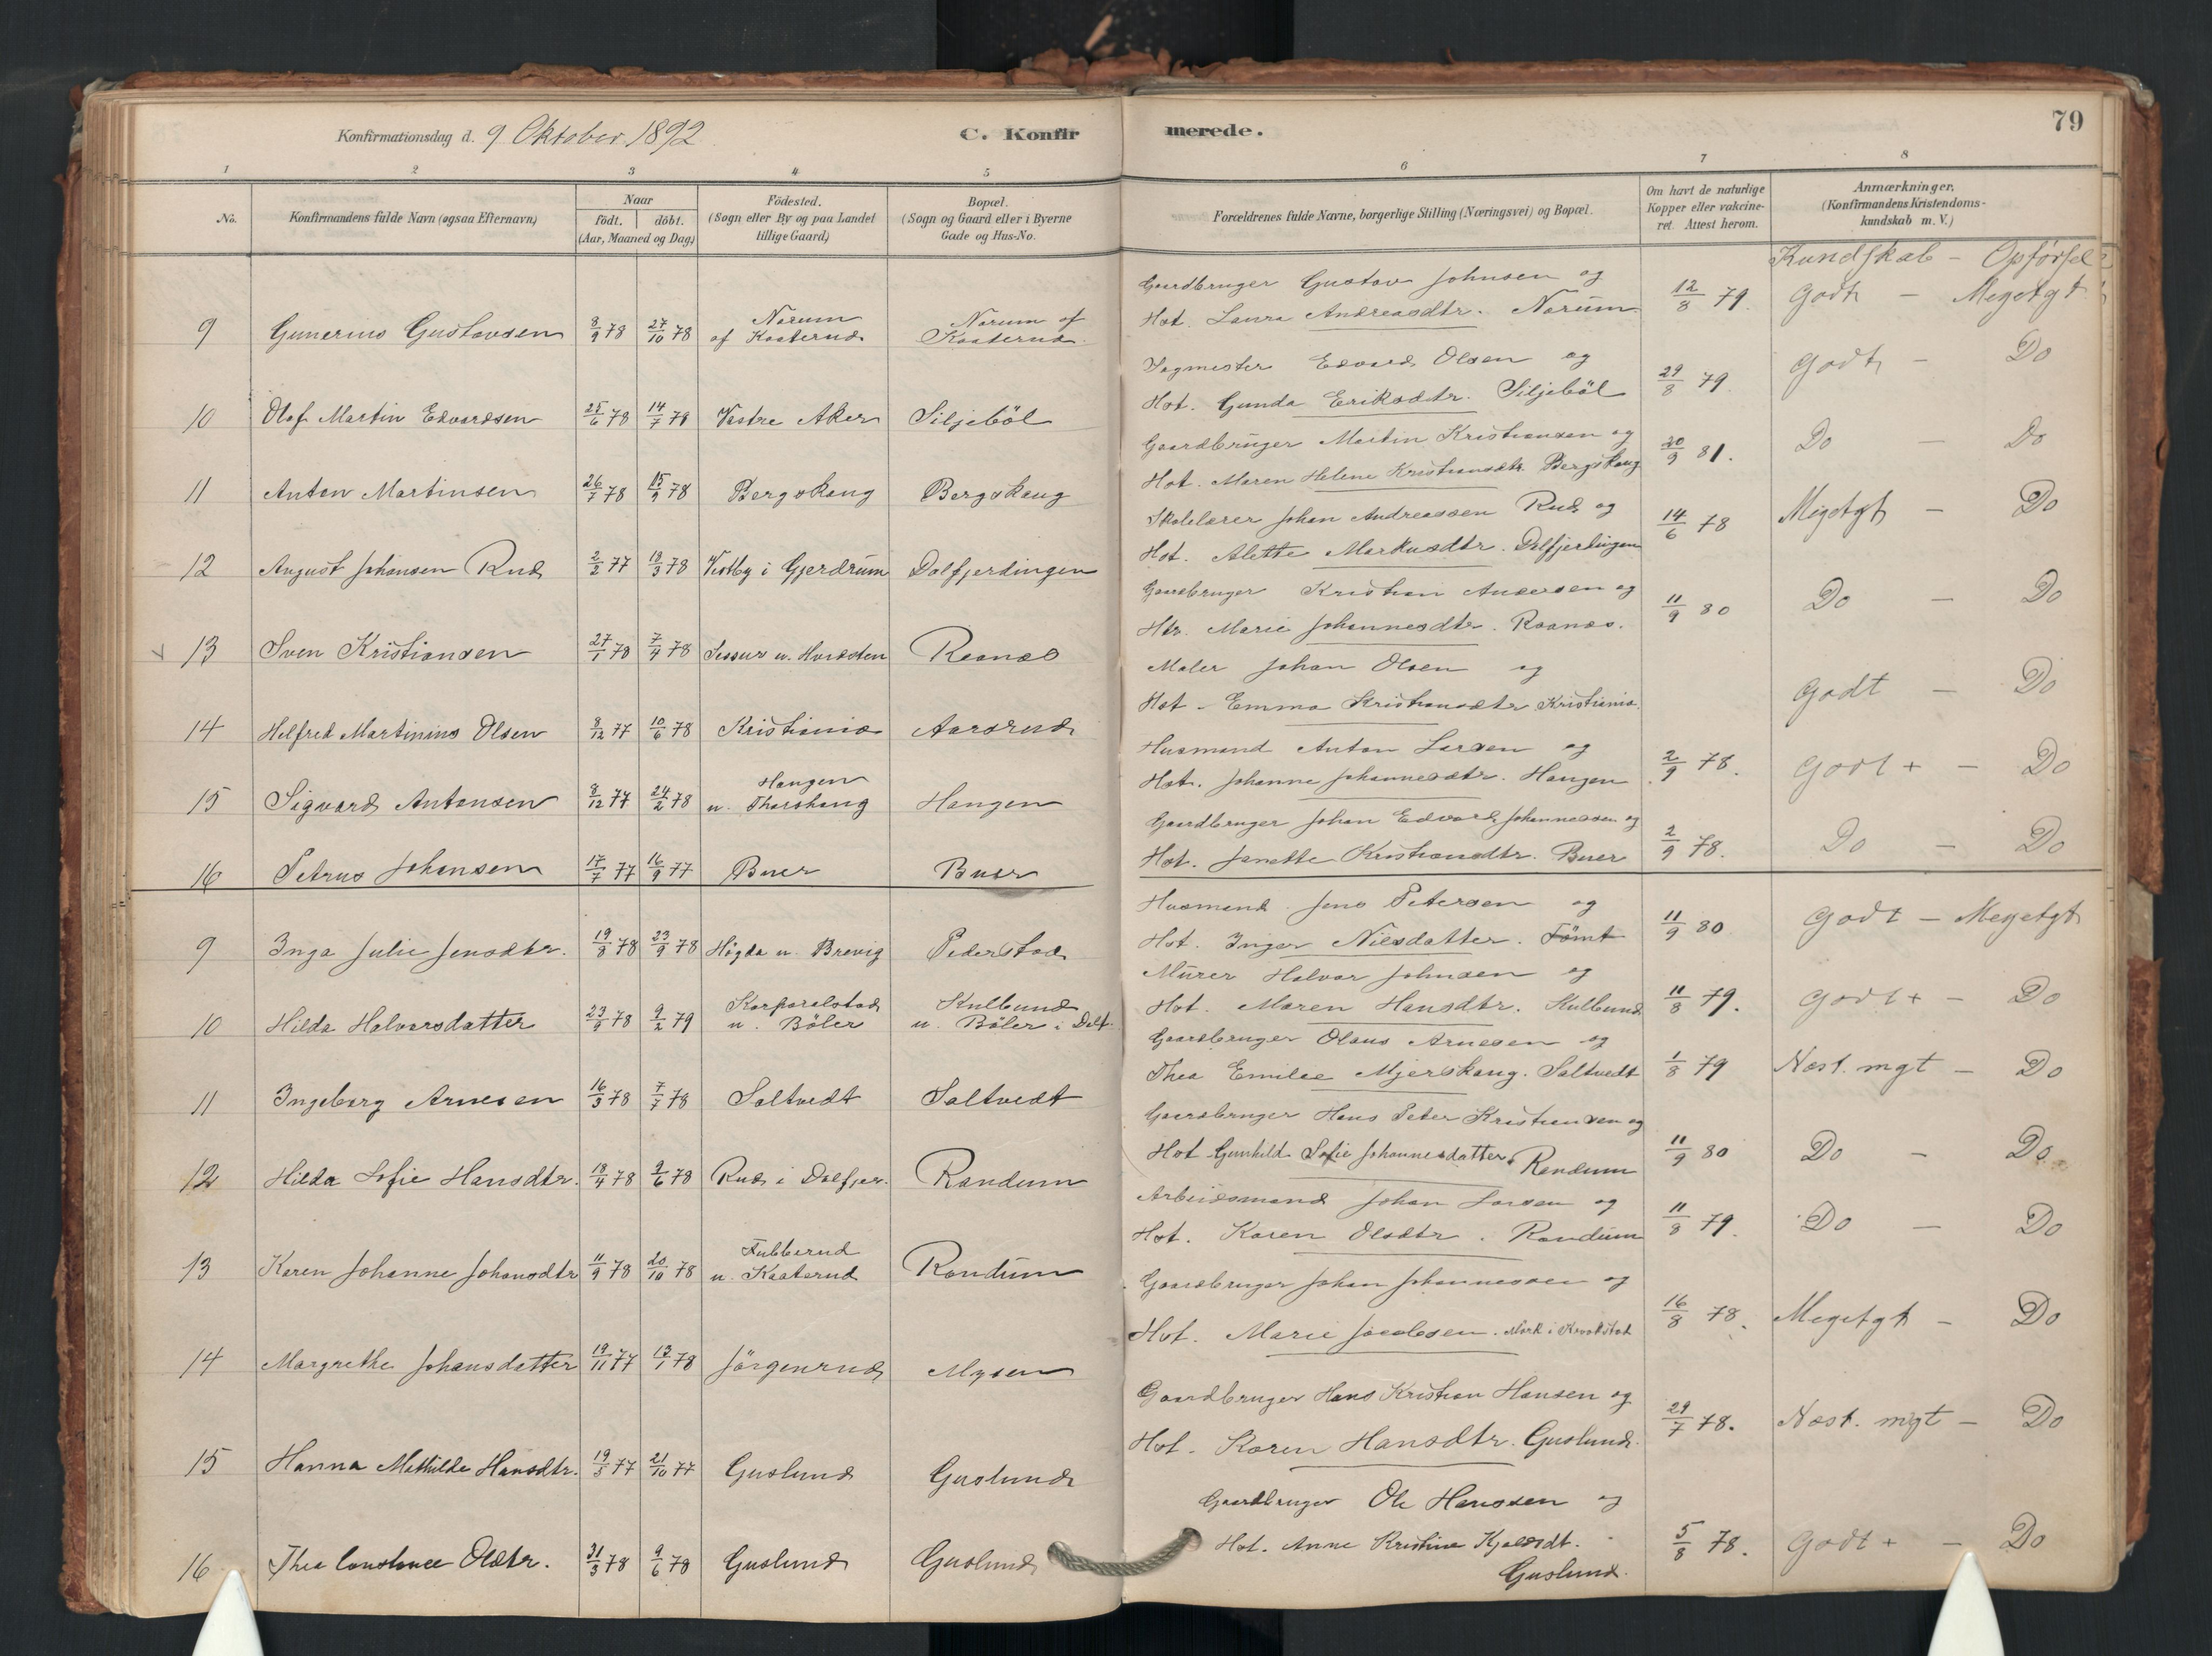 Konfirmationsdag d. 9 Oktober 1892
C. Konfirmerede.
79
1 2 3 4 5 6 7 8
No.
Konfirmandens fulde Navn (ogsaa Efternavn)
Naar
födt. döbt.
(Aar, Maaned og Dag)
Födested.
(Sogn eller By og paa Landet
tillige Gaard)
Bopæl.
(Sogn og Gaard eller i Byerne
Gade og Hus-No.
Forældrenes fulde Navne, borgerlige Stilling (Næringsvei) og Bopæl.
Om havt de naturlige
Kopper eller vakcine-
ret. Attest herom.
Anmærkninger.
(Konfirmandens Kristendoms-
kundskab m. V.)
Kundskab - Opförsel
9 Gunerius Gustavsen 8/9 78 27/10 78 Norum af Kaaterud Norum af Kaaterud
Gaardbruger Gustav Johnsen og
Hst. Laura Andreasdtr. Norum 12/8 79. Godt - Megetgt
10 Olaf Martin Edvardsen 25/6 78 14/7 78 Vestre Aker Siljeböl
Sagmester Edvard Olsen og
Hst. Gunda Eriksdtr. Siljeböl 29/8 79 Godt - Do
11 Anton Martinsen 26/7 78 15/9 78 Bergskaug Bergskaug
Gaardbruger Martin Kristiansen og
Hst. Maren Helene Kristiansdtr. Bergskaug 20/9 81. Do - Do
12 August Johansen Rud 2/2 77 18/3 78 Vestby i Gjerdrum Dalfjerdingen
Skolelærer Johan Andreassen Rud og
Hst. Alette Markusdtr. Dalfjerdingen 14/6 78 Megetgt - Do
13 Sven Kristiansen 27/1 78 7/4 78 Raanæs
Gaardbruger Kristian Andersen og
Htr. Marie Johannesdtr. Raanæs. 11/9 80 Do - Do
14 Helfred Martinius Olsen 8/12 77 10/6 78 Kristiania Aarsrud
Maler Johan Olsen og
Hst - Emma Kristiansdtr Kristiania. Godt - Do
15 Sigvard Antonsen 8/12 77 24/2 78 Haugen u. Thorshaug Haugen
Husmand Anton Larsen og
Hst. Johanne Johannesdtr. Haugen 2/9 78. Godt + - Do
16 Petrus Johansen 17/7 77 16/9 77 Buer Buer
Gaardbruger Johan Edvard Johannessen og
Hst. Janette Kristiansdtr. Buer 2/9 78. Do - Do
9 Inga Julie Jensdtr. 19/8 78 23/9 78 Högda u. Brevig Pederstad
Husmand Jens Petersen og
Hst. Inger Nilsdatter. Tömt 11/9 80 Godt - Megetgt
10 Hilda Halvorsdatter 23/9 78 9/2 79 Korporalstad u. Böler Kulbund u. Böler i Dalf.
Murer Halvor Johnsen og
Hst. Maren Hansdtr. Kulbund 11/8 79. Godt + - Do
11 Ingeborg Arnesen 16/3 78 7/7 78 Saltvedt Saltvedt
Gaardbruger Olaus Arnesen og
Thea Emilie Mjerskaug. Saltvedt 1/8 79 Næst. mgt - Do
12 Hilda Sofie Hansdtr. 18/4 78 9/6 78 Rud i Dalfjer. Randum
Gaardbruger Hans Peter Kristiansen og
Hst Gunhild Sofie Johannesdatter. Randum 11/9 80 Do - Do
13 Karen Johanne Johansdtr 11/9 78 20/10 78 Fubberud u. Kaaterud Randum
Arbeidsmand Johan Larsen og
Hst. Karen Olsdtr. Randum 11/8 79. Do - Do
14 Margrethe Johansdatter 19/11 77 13/1 78 Jörgenrud Mysen
Gaardbruger Johan Johannessen og
Hst. Marie Jacobsen. Mork i Kraakstad 16/8 78. Megetgt - Do
15 Hanna Mathilde Hansdtr. 19/5 77 21/10 77 Guslund Guslund
Gaardbruger Hans Kristian Hansen og
Hst. Karen Hansdtr. Guslund. 29/7 78. Næst. mgt - Do
16 Thea Constance Olsdtr. 31/3 78 9/6 78 Guslund Guslund
Gaardbruger Ole Hanssen og
Hst. Anne Kristine Kjelsdt.
Guslund. 5/8 78. Godt + - Do